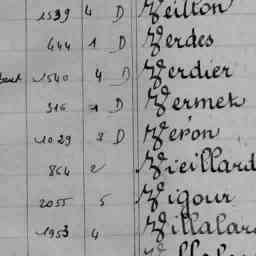 1539 4 D Veilton
444 1 D Verdes
1540 4 D Verdier
316 1 D Vermet
1029 3 D Veron
864 2 Vieillard
2055 5 Vigour
1953 4 Villalar